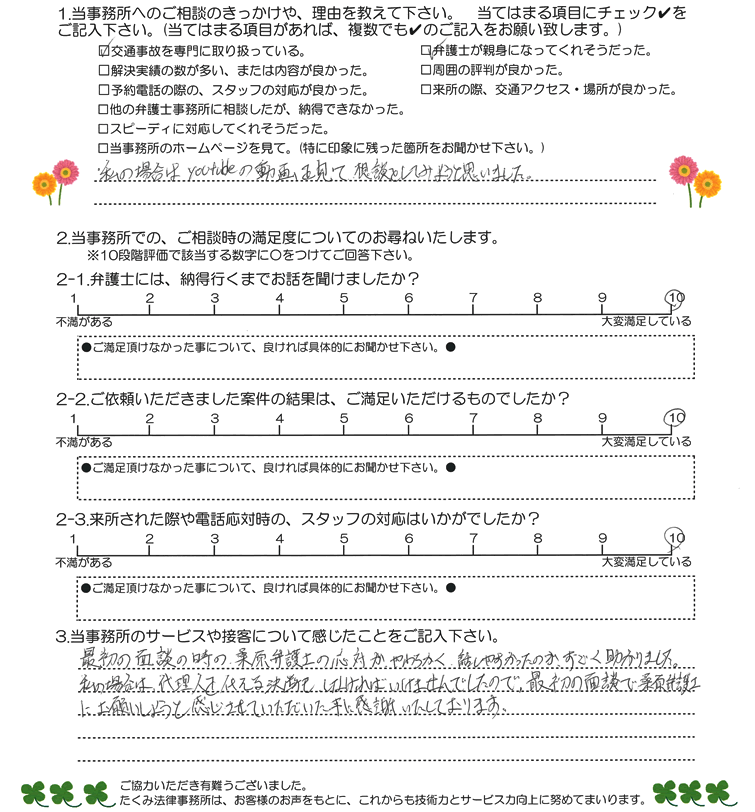 1.当事務所へのご相談のきっかけや、理由を教えて下さい。 当てはまる項目にチェック✔を
ご記入下さい。(当てはまる項目があれば、複数でも✔のご記入をお願い致します。)
☑交通事故を専門に取り扱っている。 ☑弁護士が親身になってくれそうだった。
□解決実績の数が多い、または内容が良かった。 □周囲の評判が良かった。
□予約電話の際の、スタッフの対応が良かった。 □来所の際、交通アクセス・場所が良かった。
□他の弁護士事務所に相談したが、納得できなかった。
□スピーディに対応してくれそうだった。
□当事務所のホームページを見て。(特に印象に残った箇所をお聞かせ下さい。)
私の場合は youtubeの動画を見て 相談をしてみようと思いました。
2.当事務所での、ご相談時の満足度についてのお尋ねいたします。
※10段階評価で該当する数字に〇をつけてご回答下さい。
2-1.弁護士には、納得行くまでお話を聞けましたか?
1 2 3 4 5 6 7 8 9 10
不満がある 大変満足している
●ご満足頂けなかった事について、良ければ具体的にお聞かせ下さい。●
2-2.ご依頼いただきました案件の結果は、ご満足いただけるものでしたか?
1 2 3 4 5 6 7 8 9 10
不満がある 大変満足している
●ご満足頂けなかった事について、良ければ具体的にお聞かせ下さい。●
2-3.来所された際や電話応対時の、スタッフの対応はいかがでしたか?
1 2 3 4 5 6 7 8 9 10
不満がある 大変満足している
●ご満足頂けなかった事について、良ければ具体的にお聞かせ下さい。●
3.当事務所のサービスや接客について感じたことをご記入下さい。
最初の面談の時の 桑原弁護士の応対がやわらかく 話しやすかったのが、すごく助かりました。
私の場合は、代理人を 伝える決断を しなければいけませんでしたので、最初の面談で桑原弁護士
にお願いしようと感じさせていただいた事に感謝いたしております。
ご協力いただき有難うございました。
たくみ法律事務所は、お客様のお声をもとに、これからも技術力とサービス力向上に努めてまいります。